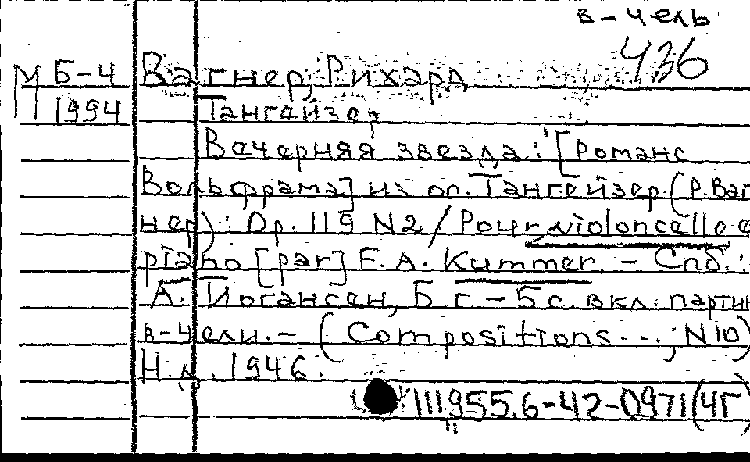 в-чель
436
М Б-4 Вагнер, Рихард
1994 Тангейзер
Вечерняя звезда: [Романс
Вольфрама] из оп. Тангейзер (Р. Ваг
нер): Op. 119 N2 / Pour violoncelle e
piano [par] F. A. Kummer. - Спб.:
А. Иогансен, Б.г. - 5 с. вкл. парти
в-чели. - (Compositions...; N10)
Н.д. 1946.
111955.6-42-0971(4Г)